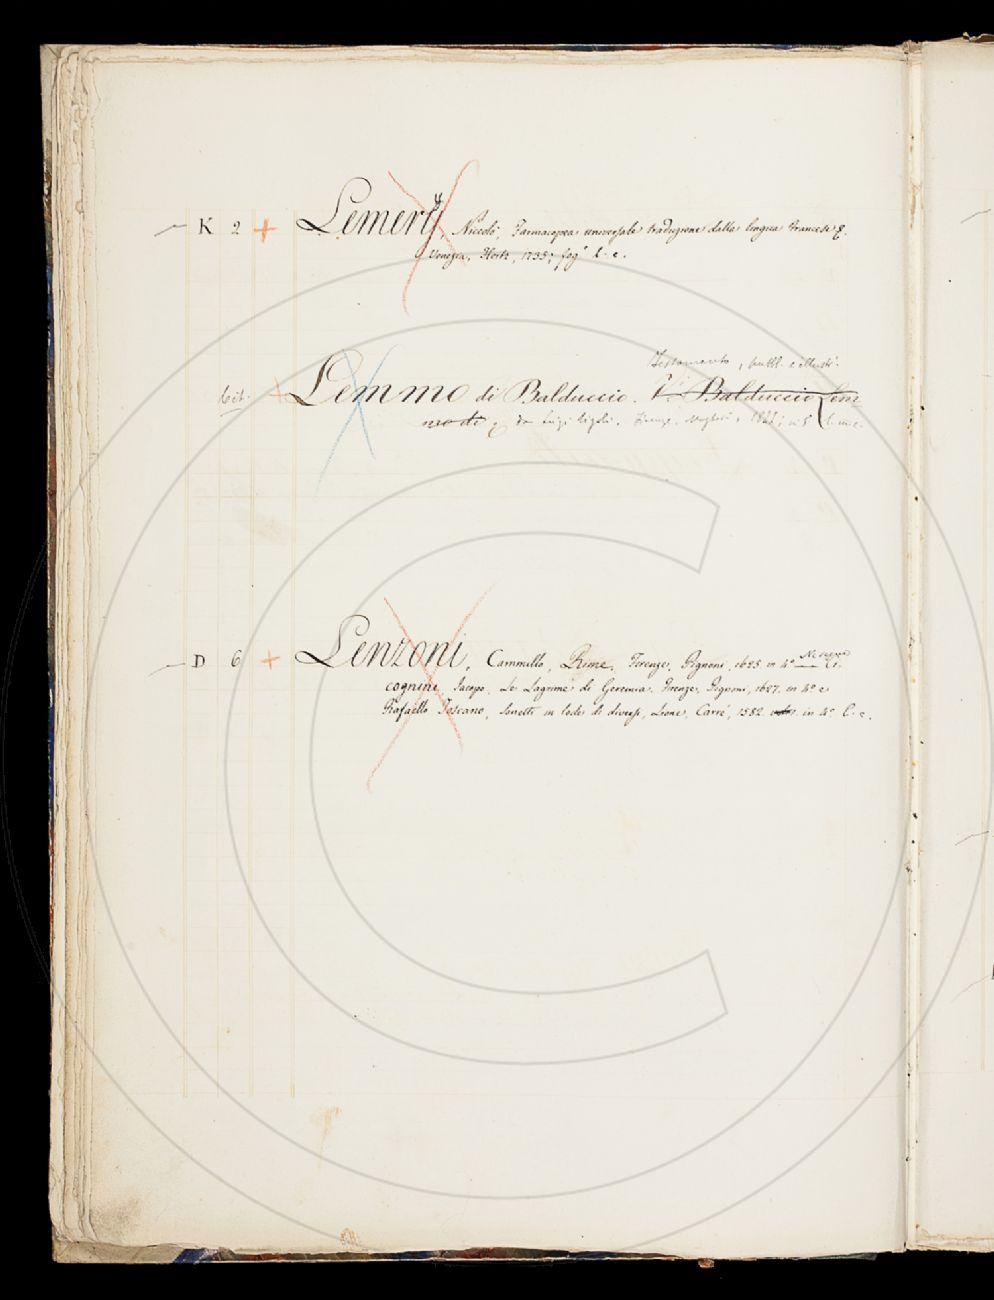 K 2 + Lemery, Niccolò, Farmacopea universale traduzione dalla lingua Francese
Venezia, Hertz, 1735; fog° l. c.
Testamento, pubbl. e illustr.
Cit. + Lemmo di Balduccio. V. Balduccio Lem
mo di da Luigi Rigoli. Firenze, Magheri,
D 6 + Lenzoni, Cammillo, Rime, Firenze, Pignoni, 1625 in 4° Ci-
cognini, Jacopo, Le Lagrime di Geremia. Firenze, Pignoni, 1627. in 4° e
Rafaello Toscano, Sonetti in lode di diversi, Lione, Carré, 1582 in 4°. l. c.